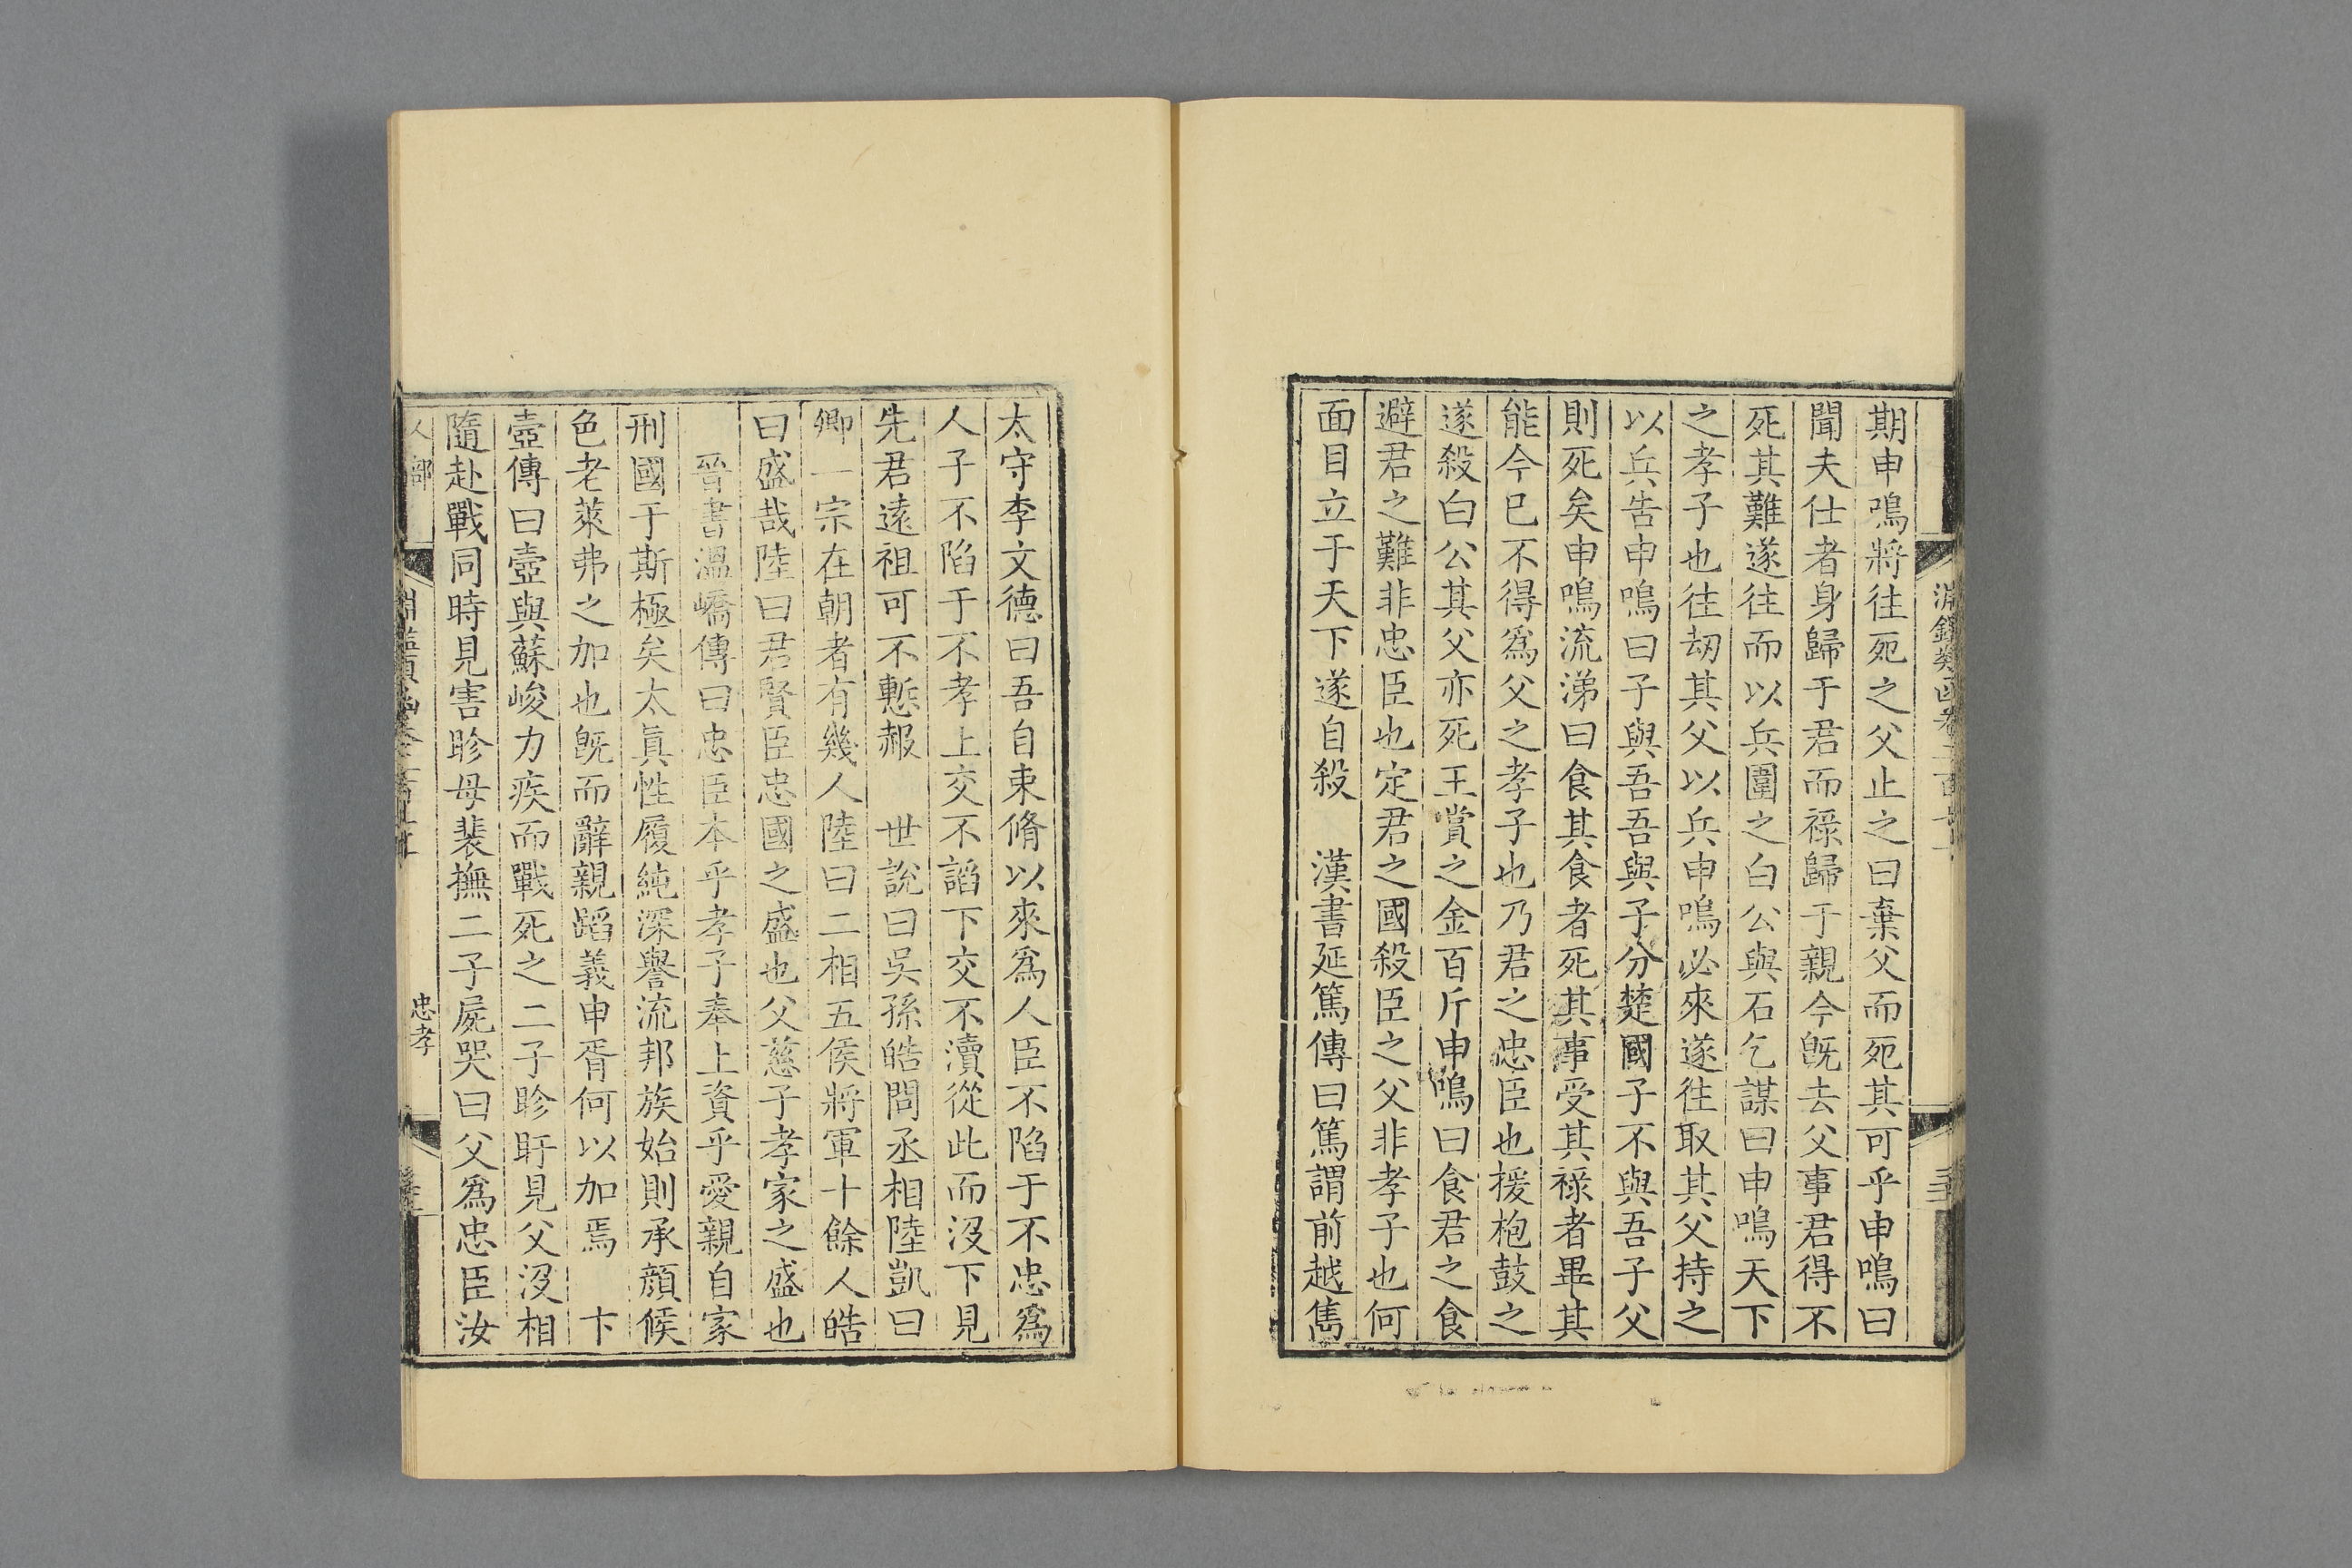 期申鳴將往死之父止之曰棄父而死其可乎申鳴曰
聞夫仕者身歸于君而祿歸于親今旣去父事君得不
死其難遂往而以兵圍之白公與石乞謀曰申鳴天下
之孝子也往刧其父以兵申鳴必來遂往取其父持之
以兵告申鳴曰子與吾吾與子分楚國子不與吾子父
則死矣申鳴流涕曰食其食者死其事受其祿者畢其
能今已不得爲父之孝子也乃君之忠臣也援枹鼓之
遂殺白公其父亦死王賞之金百斤申鳴曰食君之食
避君之難非忠臣也定君之國殺臣之父非孝子也何
面目立于天下遂自殺　漢書延篤傳曰篤謂前越雋
太守李文德曰吾自束脩以來爲人臣不陷于不忠爲
人子不陷于不孝上交不諂下交不瀆從此而沒下見
先君遠祖可不慙赧　世說曰吳孫皓問丞相陸凱曰
卿一宗在朝者有幾人陸曰二相五侯將軍十餘人皓
曰盛哉陸曰君賢臣忠國之盛也父慈子孝家之盛也
晉書溫嶠傳曰忠臣本乎孝子奉上資乎愛親自家
刑國于斯極矣太眞性履純深譽流邦族始則承顔候
色老萊弗之加也旣而辭親蹈義申胥何以加焉　卞
壼傳曰壼與蘇峻力疾而戰死之二子眕盱見父沒相
隨赴戰同時見害眕母裴撫二子屍哭曰父爲忠臣汝
人部
忠孝